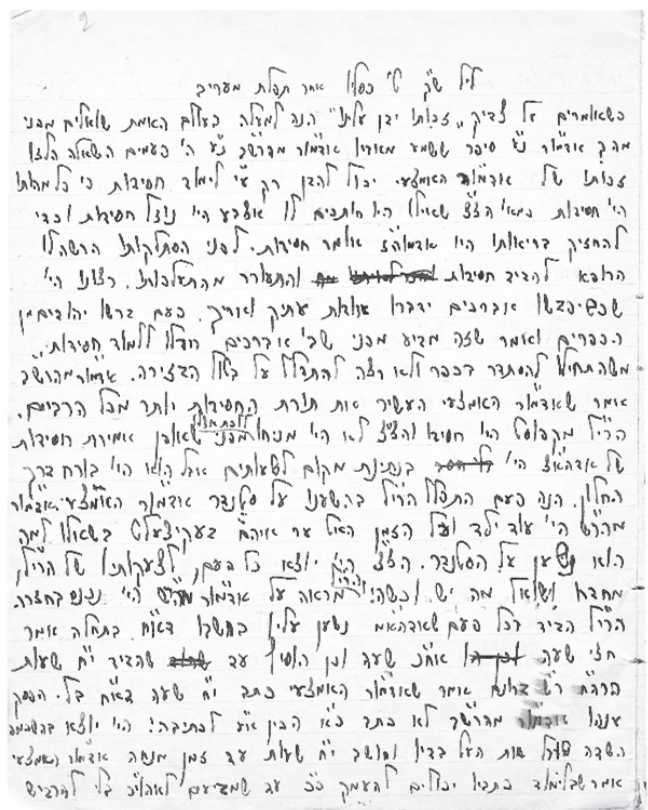 2
ליל ש"ק ט' כסלו אחר תפלת מעריב
כשאומרים על צדיק "זכותו יגן עלינו" הנה למעלה בעולם האמת שואלים מפני
מה כ"ק אדמו"ר נ"ע סיפר ששמע מאביו אדמו"ר מהרש"ב נ"ע ה' פעמים השאלה הלזו
זכותו של אדמו"ר האמצעי יכול להגן רק ע"י לימוד חסידות כי כל מהותו
הי' חסידות כמא' הצ"צ שאילו היו חותכים לו אצבע הי' נוזל חסידות ובכדי
להחזיק בריאותו היו אדמוה"ז אומר חסידות. לפני הסתלקותו הרשה לו
הרופא להגיד חסידות והתעורר מהתעלפותו. רצונו הי'
אברכים ידברו אודות עתיק ואריך. פעם ברשו יהודים מן
הכפרים ואומר שזה מגיע מפני שב' אברכים חדלו ללמוד חסידות
משהתחילו להסתדר בכפר ולא רצה להתפלל על ביטול הגזירה. אדמו"ר מהרש"ב
אומר שאדמו"ר האמצעי העשיר את תורת החסידות יותר מכל הרביים.
הרי"ל מקאפוסט הי' חסיד והצ"צ לא הי' מניחו ללכת אצלו מפני שאופן אמירת חסידות
של אדהאמ"צ הי' בנתינת מקום לשעותים אבל הוא הי' בורח דרך
החלון. הנה פעם התפלל הרי"ל בהשענו על סטנדר אדמו"ר האמצעי אדמו"ר
מהר"ש הי' עוד ילד וכל הזמן האט ער איהם בשאלו למה
הוא נשען על הסטנדר. הצ"צ הי' יוצא כל פעם לצעקותיו של הרי"ל
מחדרו ושואל מה יש וכשהי' הרי"ל מראה על אדמו"ר מהר"ש הי' נכנס בחזרה.
הרי"ל הגיד בכל פעם שאדהאמ"צ נשען עליו בחשבו דא"ח. בתחלה אמר
חצי שעה אח"כ שעה וכן הוסיף עד שהגיד י"ח שעות
הרה"ח רש"ד אומר שאדמו"ר האמצעי כתב י"ח שעה דא"ח בלי הפסק
ענהו אדמו"ר מהרש"ב לא כתב כ"א הכין א"ע לכתיבה! הי' יוצא בהשכמה
השדה וחושב י"ח שעות עד זמן מנחה אדמו"ר האמצעי
אמר שבלימוד כתביו יכולים להעמק כ"כ עד שמגיעים לאוא"כ בלי להרגיש